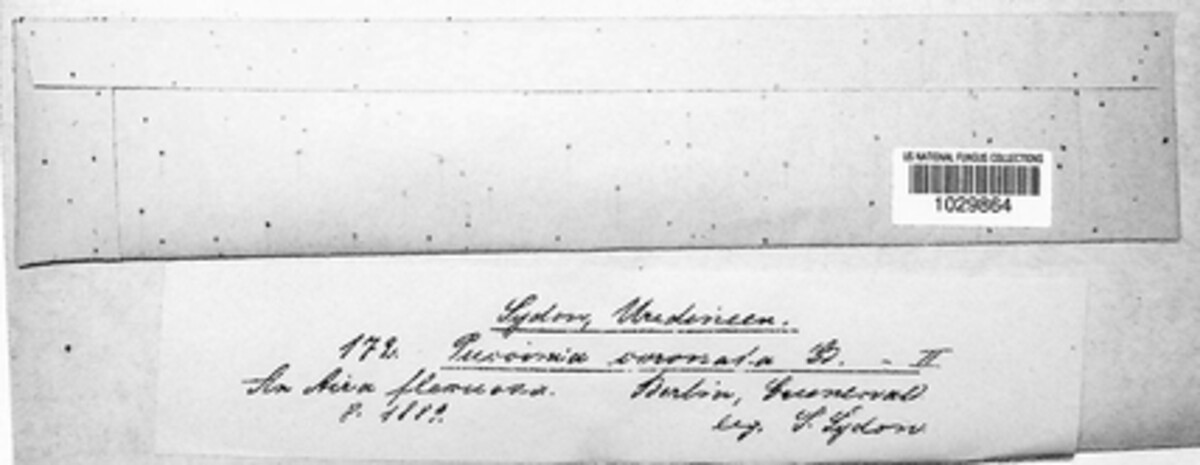 US NATIONAL FUNGUS COLLECTIONS
1029864
Sydow, Uredineen.
172. Puccinia coronata B. - II
An Aira flexuosa. Berlin, Grunewald
8. 1889. leg. P. Sydow